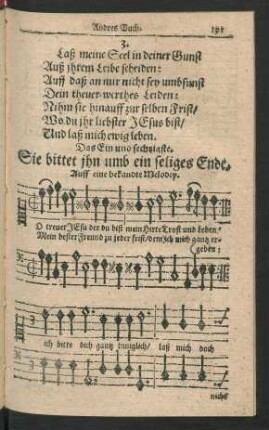 Andres Buch. 191
3.
Laß meine Seel in deiner Gunst
Auß jhrem Leibe scheiden:
Auff daß an mir nicht sey umbsunst
Dein thewer-werthes Leiden:
Nihm sie hinauff zur selben Frist/
Wo du jhr liebster JEsus bist/
Und laß mich ewig leben.
Das Ein und sechzigste.
Sie bittet jhn umb ein seliges Ende.
Auff eine bekandte Melodey.
O trewer JEsu der du bist mein Hirte Trost und Leben/
Mein bester Freund zu jeder frist/ dem ich mich gantz er-
geben:
ich bitte dich gantz inniglich/ laß mich doch
nicht